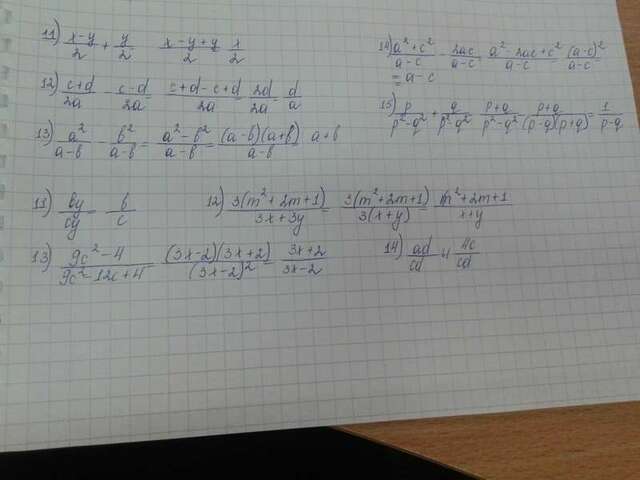 11) x-y/2 + y/2 x-y+y/2 = x/2
12) c+d/2a - c-d/2a c+d-c+d/2a = 2d/2a = d/a
13) a²/a-b - b²/a-b = a²-b²/a-b = (a-b)(a+b)/a-b a+b
14) a²+c²/a-c - 2ac/a-c = a²-2ac+c²/a-c = (a-c)²/a-c
= a-c
15) p/p²-q² + q/p²-q² = p+q/p²-q² = p+q/(p-q)(p+q) = 1/p-q
11) by/cy = b/c
12) 3(m²+2m+1)/3x+3y = 3(m²+2m+1)/3(x+y) = m²+2m+1/x+y
13) 9c²-4/9c²-12c+4 (3x-2)(3x+2)/(3x-2)² = 3x+2/3x-2
14) ad/cd и 4c/cd